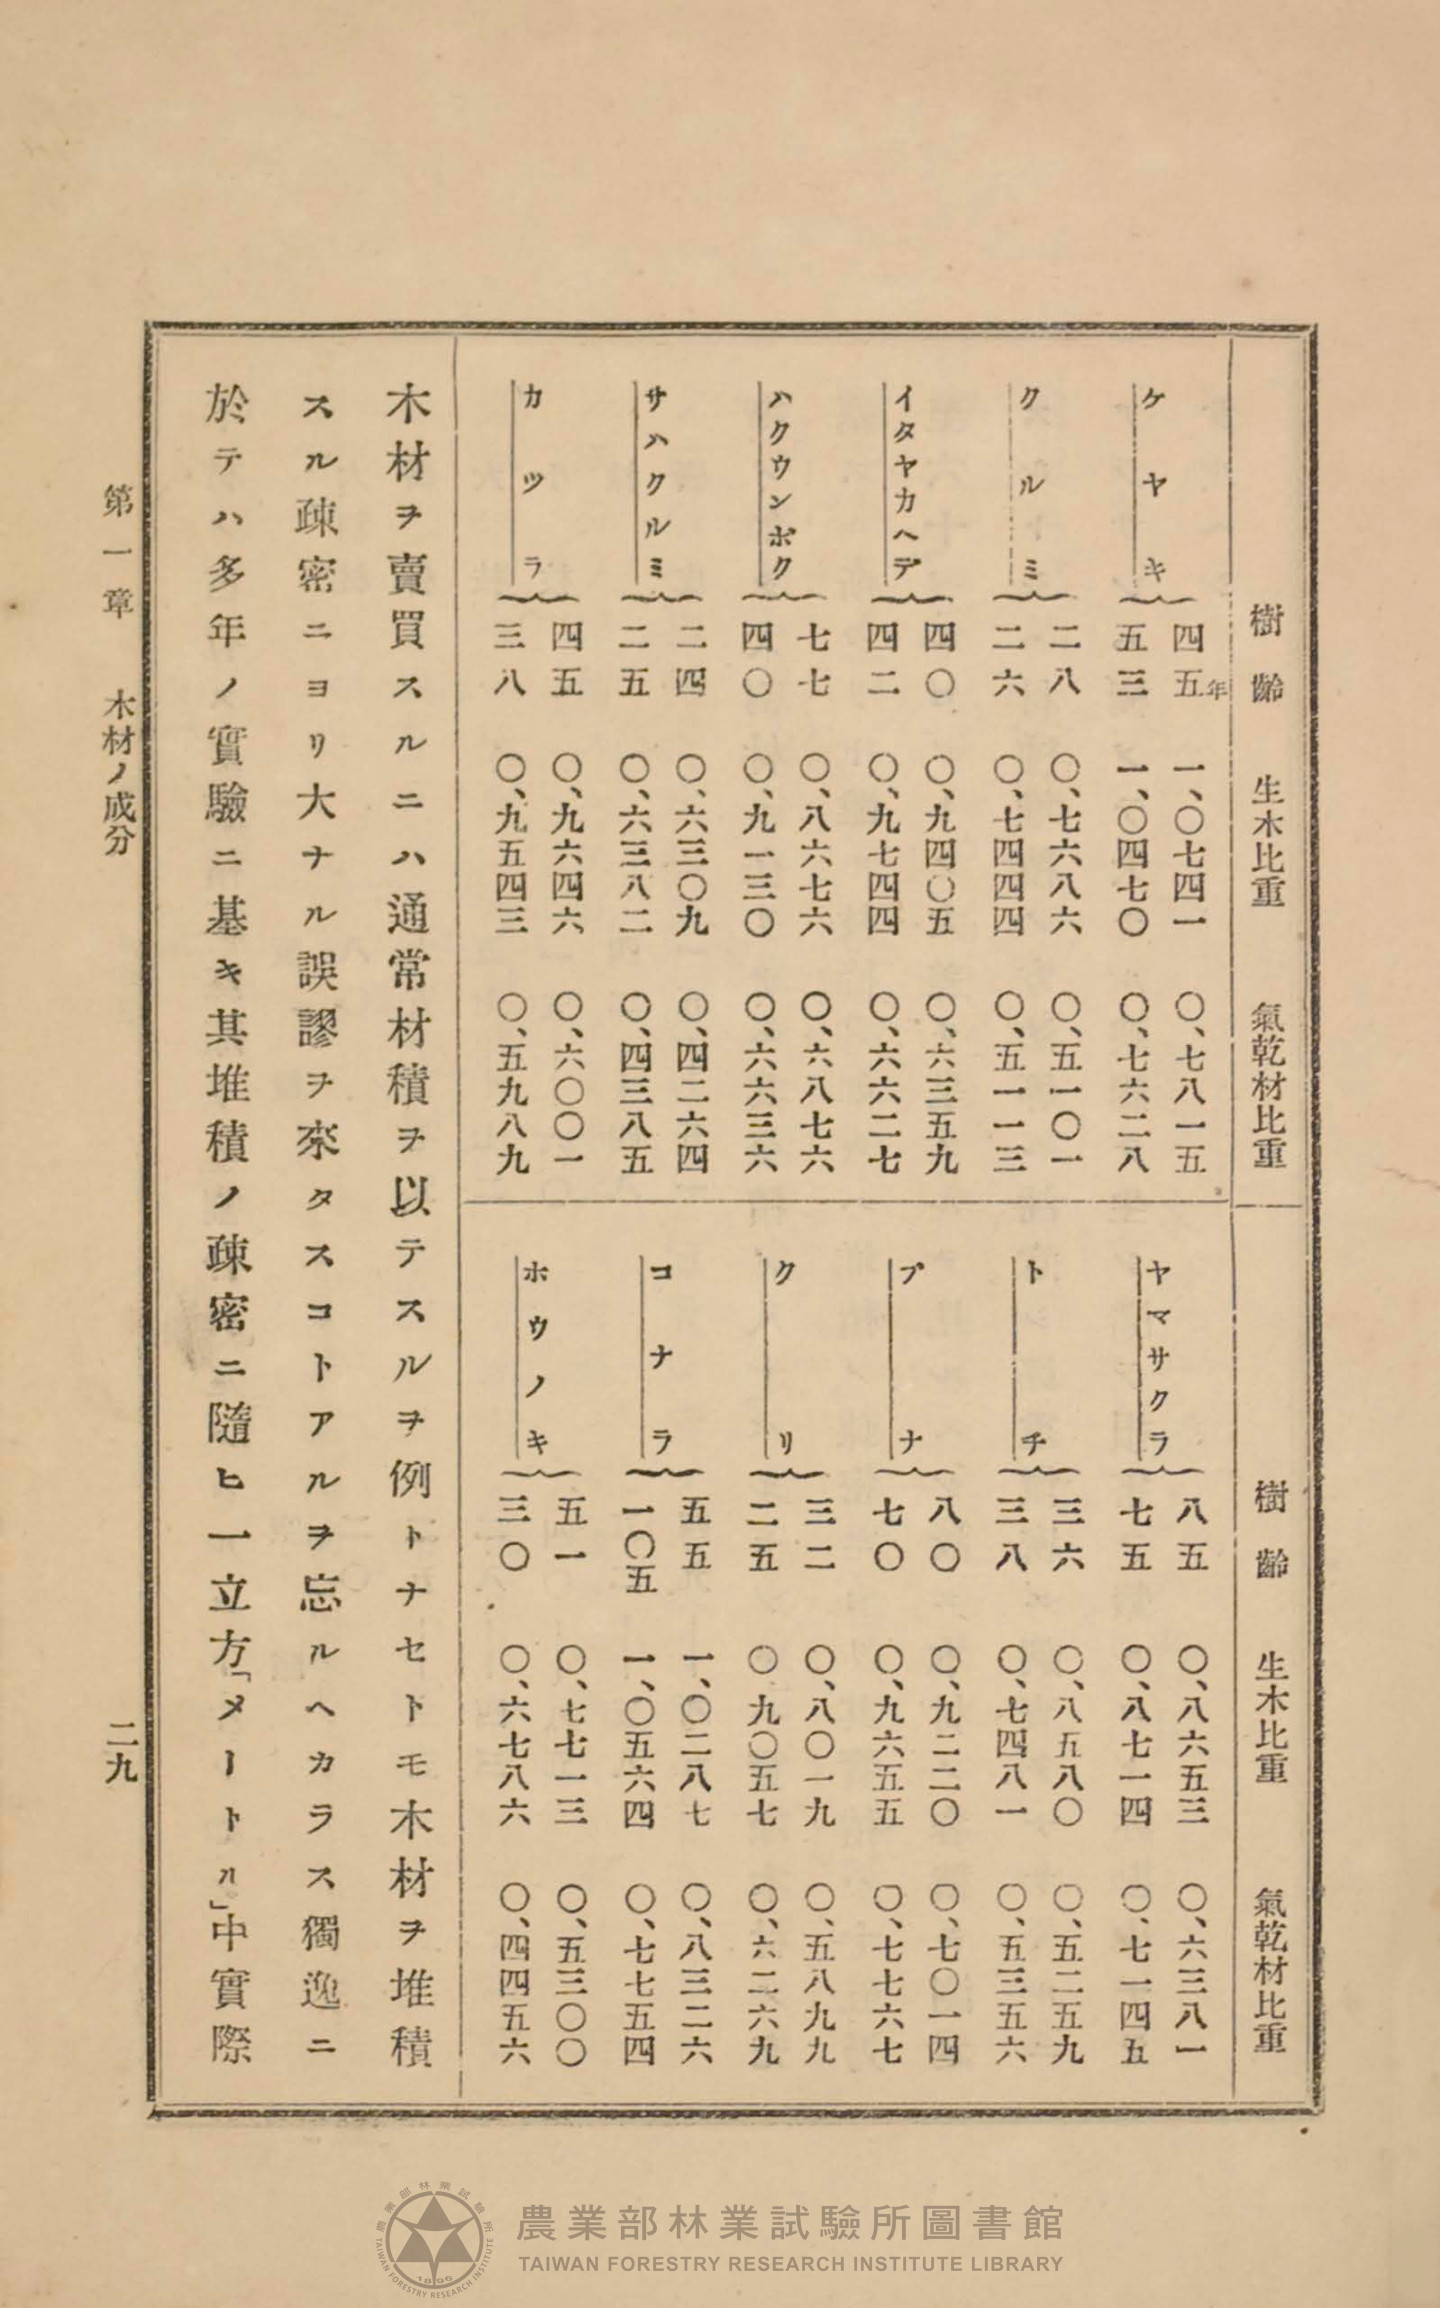 樹齡 生木比重 氣乾材比重
ケヤキ 四五年 一、〇七四一 〇、七八一五
五三 一、〇四七〇 〇、七六二八
クルミ 二八 〇、七六八六 〇、五一〇一
二六 〇、七四四四 〇、五一一三
イタヤカヘデ 四〇 〇、九四〇五 〇、六三五九
四二 〇、九七四四 〇、六六二七
ハクウンボク 七七 〇、八六七六 〇、六八七六
四〇 〇、九一三〇 〇、六六三六
サハクルミ 二四 〇、六三〇九 〇、四二六四
二五 〇、六三八二 〇、四三八五
カツラ 四五 〇、九六四六 〇、六〇〇一
三八 〇、九五四三 〇、五九八九
樹齡 生木比重 氣乾材比重
ヤマサクラ 八五 〇、八六五三 〇、六三八一
七五 〇、八七一四 〇、七一四五
トチ 三六 〇、八五八〇 〇、五二五九
三八 〇、七四八一 〇、五三五六
ブナ 八〇 〇、九二二〇 〇、七〇一四
七〇 〇、九六五五 〇、七七六七
クリ 三二 〇、八〇一九 〇、五八九九
二五 〇、九〇五七 〇、六二六九
コナラ 五五 一、〇二八七 〇、八三二六
一〇五 一、〇五六四 〇、七七五四
ホウノキ 五一 〇、七七一三 〇、五三〇〇
三〇 〇、六七八六 〇、四四五六
木材ヲ賣買スルニハ通常材積ヲ以テスルヲ例トナセトモ木材ヲ堆積
スル疎密ニヨリ大ナル誤謬ヲ來タスコトアルヲ忘ルヘカラス獨逸ニ
於テハ多年ノ實驗ニ基キ其堆積ノ疎密ニ隨ヒ一立方「メートル」中實際
第一章 木材ノ成分 二九
農業部林業試驗所圖書館
TAIWAN FORESTRY RESEARCH INSTITUTE LIBRARY
農業部林業試驗所
TAIWAN FORESTRY RESEARCH INSTITUTE
1896